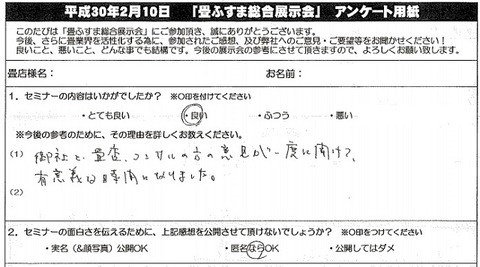 平成30年2月10日 「畳ふすま総合展示会」 アンケート用紙
このたびは「畳ふすま総合展示会」にご参加頂き、誠にありがとうございます。
今後、さらに畳業界を活性化する為に、参加されたご感想、及び弊社へのご意見・ご要望等をお聞かせください！
良いこと、悪いこと、どんな事でも結構です。今後の展示会の参考にさせて頂きますので、よろしくお願い致します。
畳店様名： お名前：
1．セミナーの内容はいかがでしたか？ ※○印を付けてください
・とても良い ・良い ・ふつう ・悪い
※今後の参考のために、その理由を詳しくお教えください。
(1) 御社と畳店、コンサルの方の意見が一度に聞けて、
有意義な時間になりました。
(2)
2．セミナーの面白さを伝えるために、上記感想を公開させて頂けないでしょうか？ ※○印をつけてください
・実名（&顔写真）公開OK ・匿名ならOK ・公開してはダメ